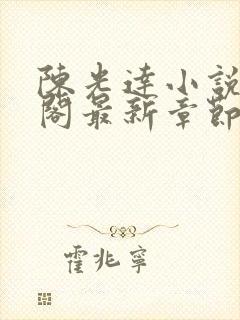 陳光達小說
閣最新章節
霍兆寧